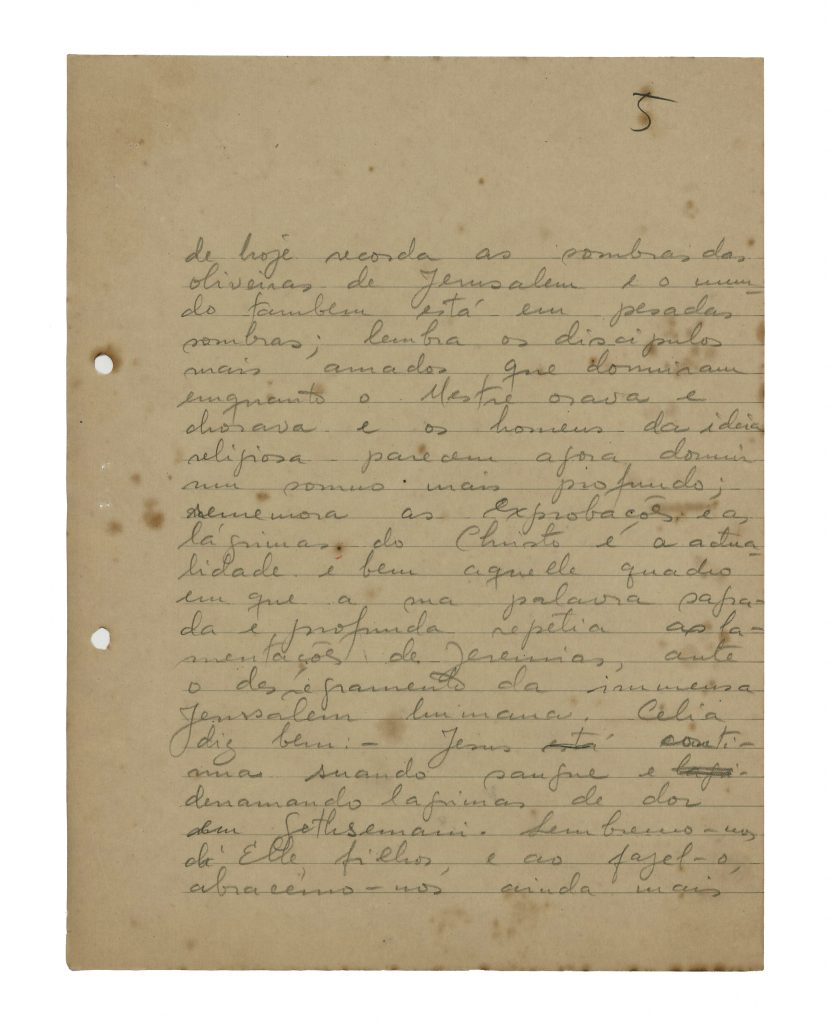 5
de hoje recorda as sombras das
oliveiras de Jerusalem e o mun-
do tambem está em pesadas
sombras; lembra os discipulos
mais amados, que dormiram
emquanto o Mestre orava e
chorava e os homens da ideia
religiosa parecem agora dormir
num somno mais profundo;
rememora as exprobações e as
lágrimas do Christo e a actua-
lidade é bem aquelle quadro
em que a sua palavra sagra-
da e profunda repetia as la-
mentações de Jeremias, ante
o desregramento da immensa
Jerusalem humana. Celia
diz bem: - Jesus está conti-
nua suando sangue e lagri-
derramando lagrimas de dor
em Gethsemani. Lembremo-nos
d'Elle, filhos, e ao fazel-o,
abracêmo-nos ainda mais